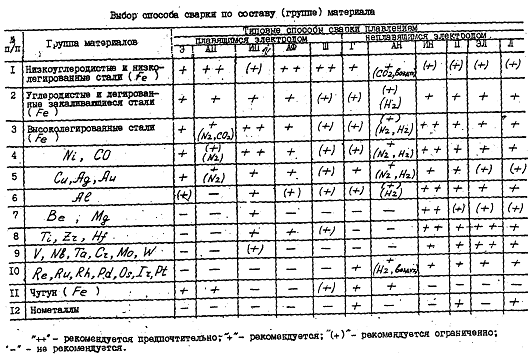 Выбор способа сварки по составу (группе) материала
№ п/п | Группа материалов | Типовые способы сварки плавлением
плавящимся электродом | неплавящимся электродом
Э | АП | ИП | АФ | Ш | Г | АН | ИН | П | ЭЛ | Л
I | Низкоуглеродистые и низколегированные стали (Fe) | + | ++ | (+) | ++ | ++ | + | + (CO2, воздух) | (+) | (+) | (+) | (+)
2 | Углеродистые и легированные закаливающиеся стали (Fe) | + | + | + | + | (+) | (+) | (+) (H2) | + | + | + | +
3 | Высоколегированные стали (Fe) | + | + (N2, CO2) | ++ | + | (+) | (+) | (+) (N2, H2) | ++ | + | + | +
4 | Ni, CO | + | (+) (N2) | ++ | + | (+) | (+) | + (N2, H2) | ++ | + | + | +
5 | Cu, Ag, Au | + | + (N2) | + | + | (+) | + | + (N2, H2) | + | + | (+) | (+)
6 | Al | (+) | — | + | (+) | (+) | (+) | (+) (H2) | ++ | + | + | +
7 | Be, Mg | — | — | + | — | — | — | — | ++ | (+) | (+) | (+)
8 | Ti, Zr, Hf | — | — | + | + | (+) | — | — | ++ | ++ | ++ | +
9 | V, Nb, Ta, Cr, Mo, W | — | — | (+) | — | — | — | — | + | + | ++ | +
10 | Re, Ru, Rh, Pd, Os, Ir, Pt | — | — | — | — | — | + | + (H2, воздух) | + | + | + | +
II | Чугун (Fe) | + | + | — | — | (+) | + | — | — | — | — | —
I2 | Нометаллы | — | — | — | — | — | + | — | — | + | — | +
"++" – рекомендуется предпочтительно; "+" – рекомендуется; "(+)" – рекомендуется ограниченно;
"–" – не рекомендуется.